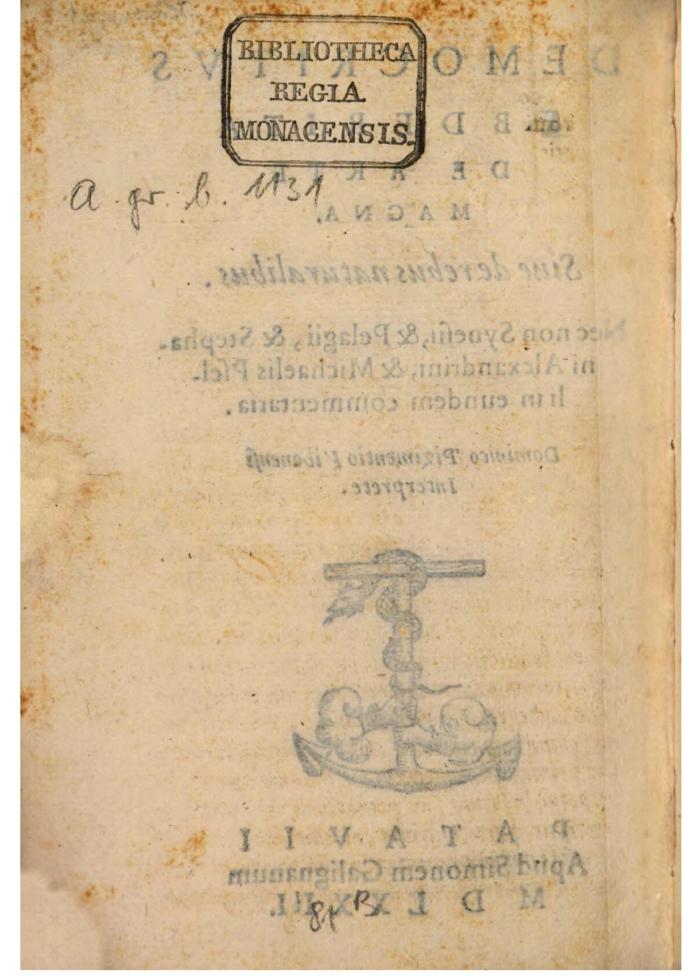 BIBLIOTHECA
REGIA
MONACENSIS.
A. gr. b. 1131
DEMOCRITVS
DE ARTE
MAGNA,
Siue de rebus naturalibus.
Nec non Synesii, & Pelagii, & Stepha-
ni Alexandrini, & Michaelis Psel-
li in eundem commentaria.
Dominico Pizimentio Vibonensi
Interprete.
PATAVII
Apud Simonem Galignanum
MDLXXIII.